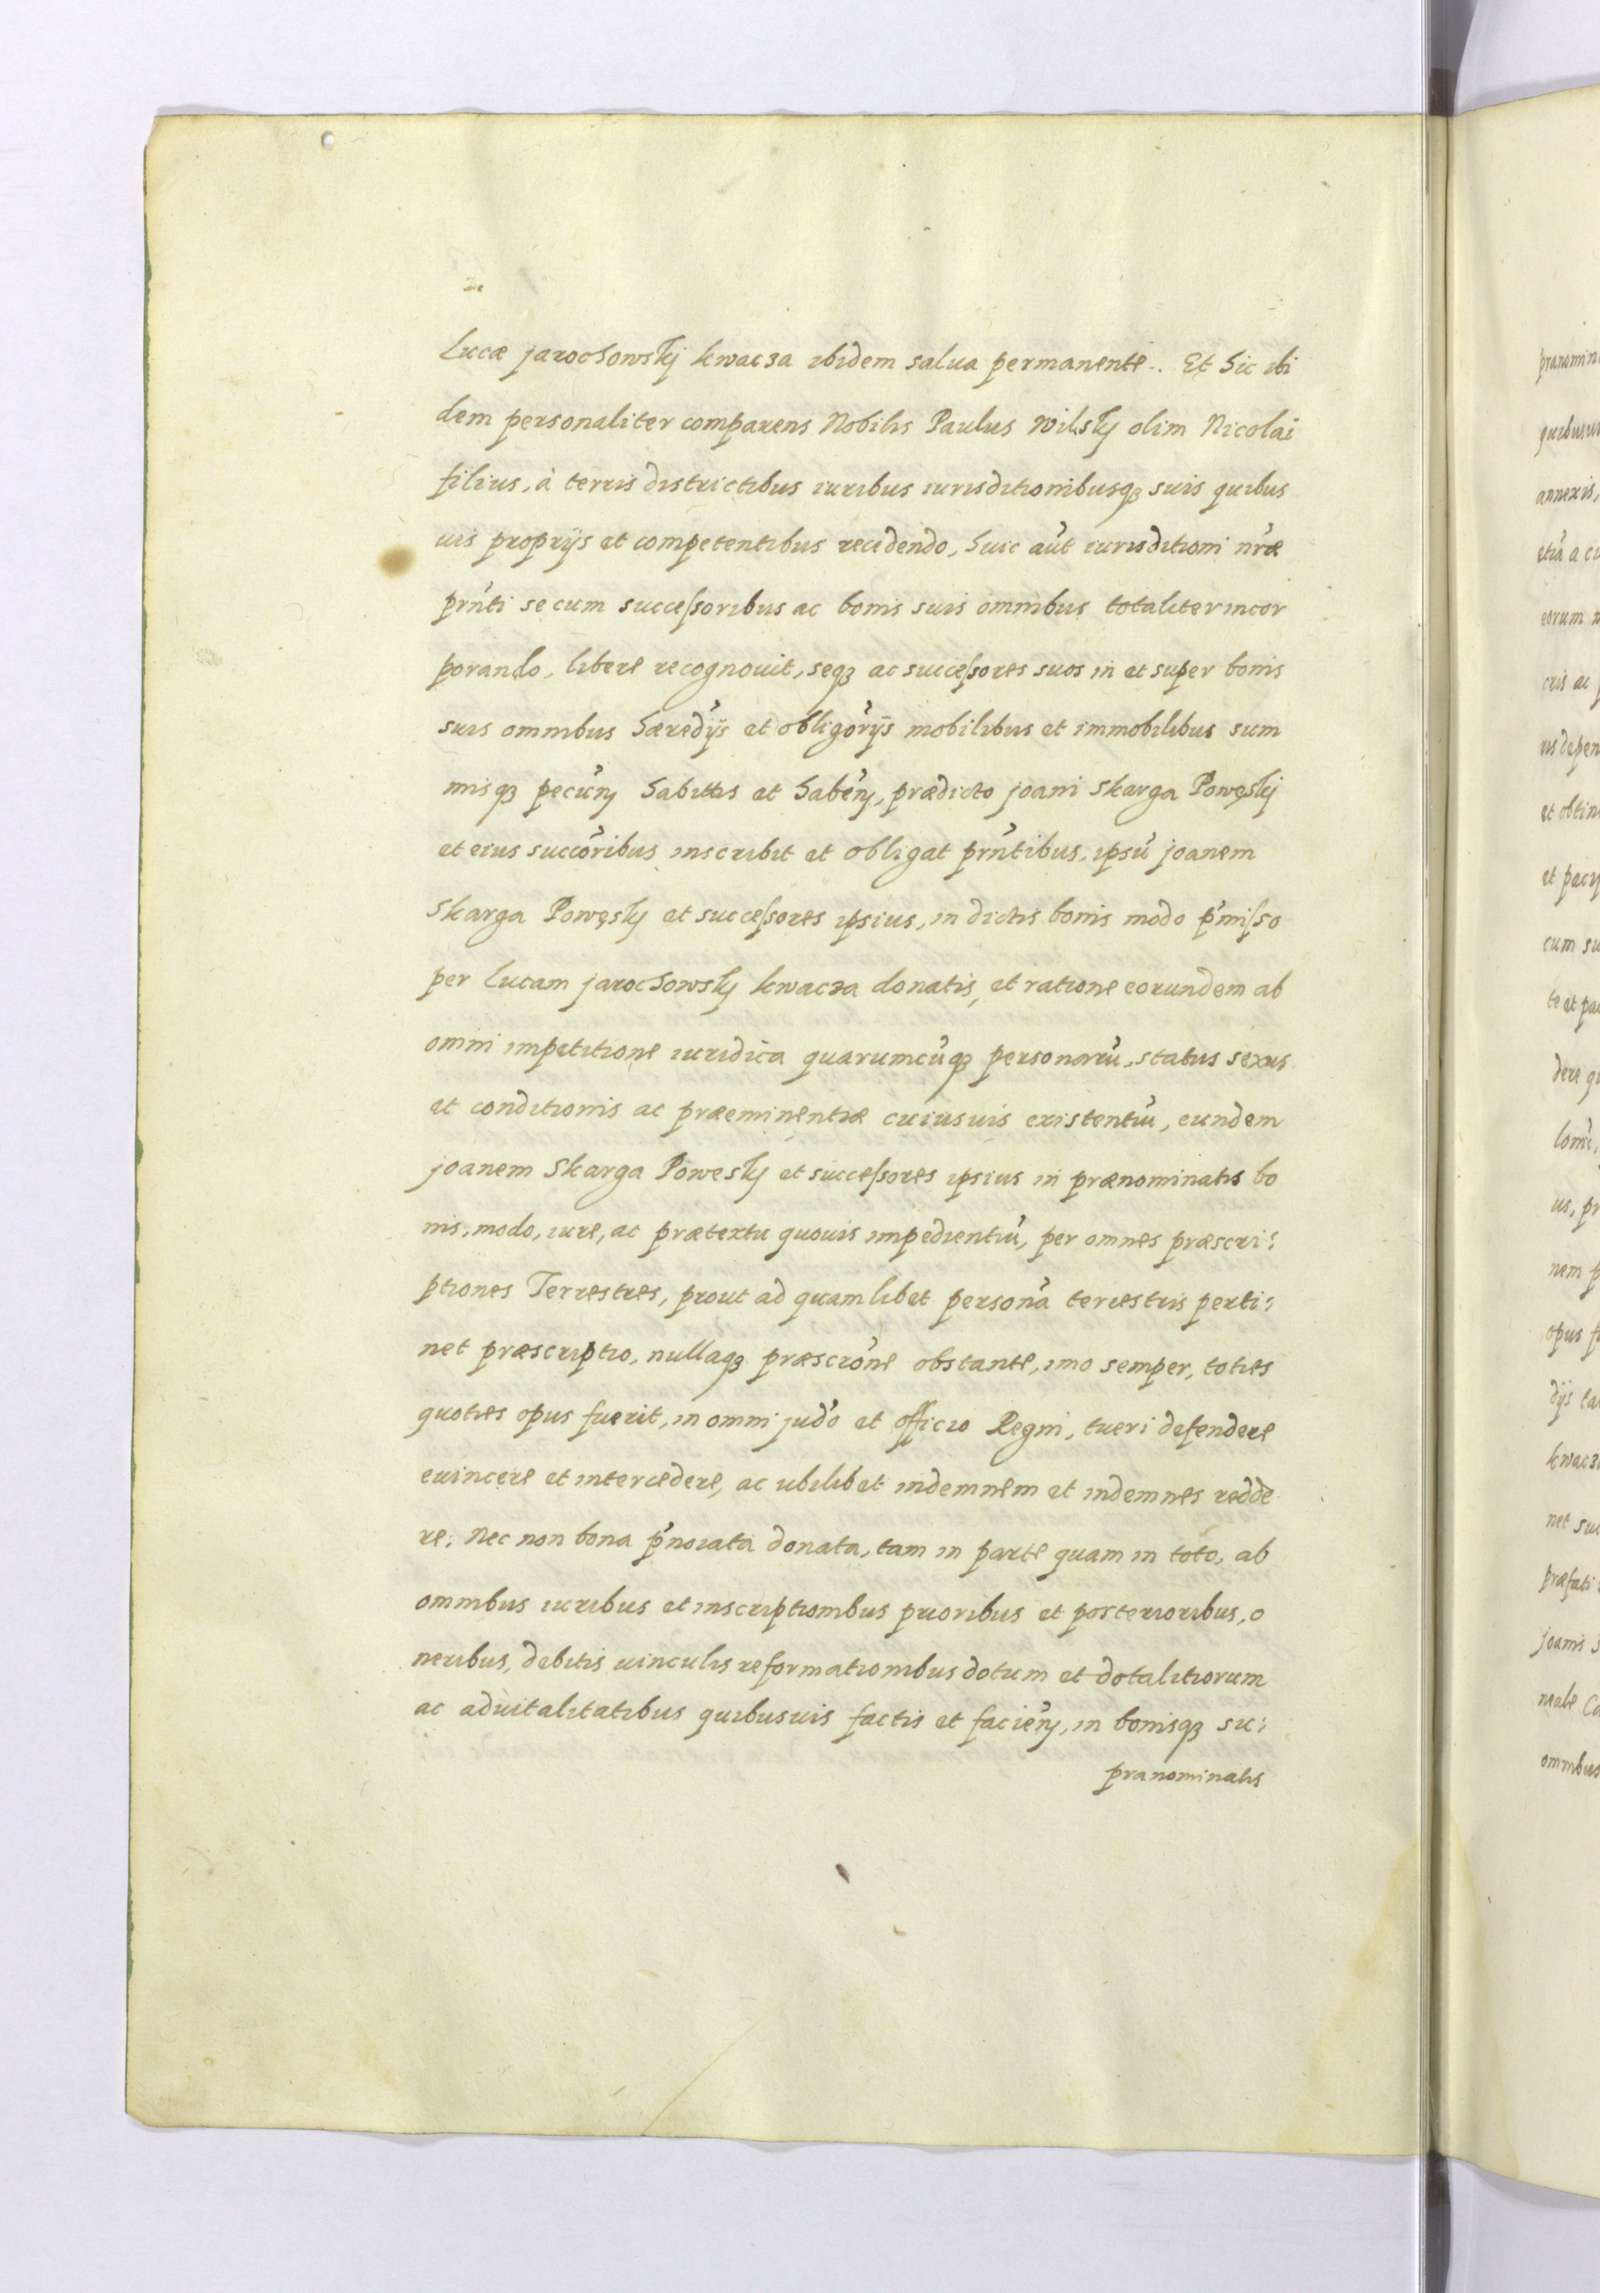 Lucæ jarochowskj kwacza ibidem salua permanente. Et hic ibi
dem personaliter comparens Nobilis Paulus Wilsky olim Nicolai
filius, à terris districtibus iuribus iurisditionibusq3 suis quibus
uis proprijs et competentibus recedendo, huic aut iurisditioni nræ
prnti se cum successoribus ac bonis suis omnibus totaliter incor
porando, libere recognouit, seq3 ac successores suos in et super bonis
suis omnibus hæredijs et obligorijs mobilibus et immobilibus sum
misq3 pecuny habitis et habeny, prædicto joani Skarga Powęskj
et eius succoribus inscribit et obligat prntibus, ipsu joanem
Skarga Powęsky et successores ipsius, in dictis bonis modo pmisso
per Lucam jarochowsky kwacza donatis, et ratione eorundem ab
omni impetitione iuridica quarumcuq3 personaru, status sexus
et conditionis ac præeminentiæ cuiusuis existentiu, eundem
joanem Skarga Powesky et successores ipsius in prænominatis bo
nis, modo, iure, ac prætextu quouis impedientiu, per omnes præscri:
ptiones Terrestres, prout ad quamlibet persona terrestris perti:
net præscriptio, nullaq3 præscrone obstante, imo semper, toties
quoties opus fuerit, in omni judo et officio Regni, tueri defendere
euincere et intercedere, ac ubilibet indemnem et indemnes redde
re; Nec non bona pnoiata donata, tam in parte quam in toto, ab
omnibus iuribus et inscriptionibus prioribus et posterioribus, o
neribus, debitis uinculis reformationibus dotum et dotalitiorum
ac aduitalitatibus quibusuis factis et facieny, in bonisq3 su:
pranominatis
prænomin
quibusui
annexis,
etia a cu
eorum
cris ac
us depen
et obtin
et pacy
cum su
te et pac
dere qu
us, pr
nem p
opus f
dijs ta
kwacz
net suc
præfati
joanis S
neale Ca
omnibus